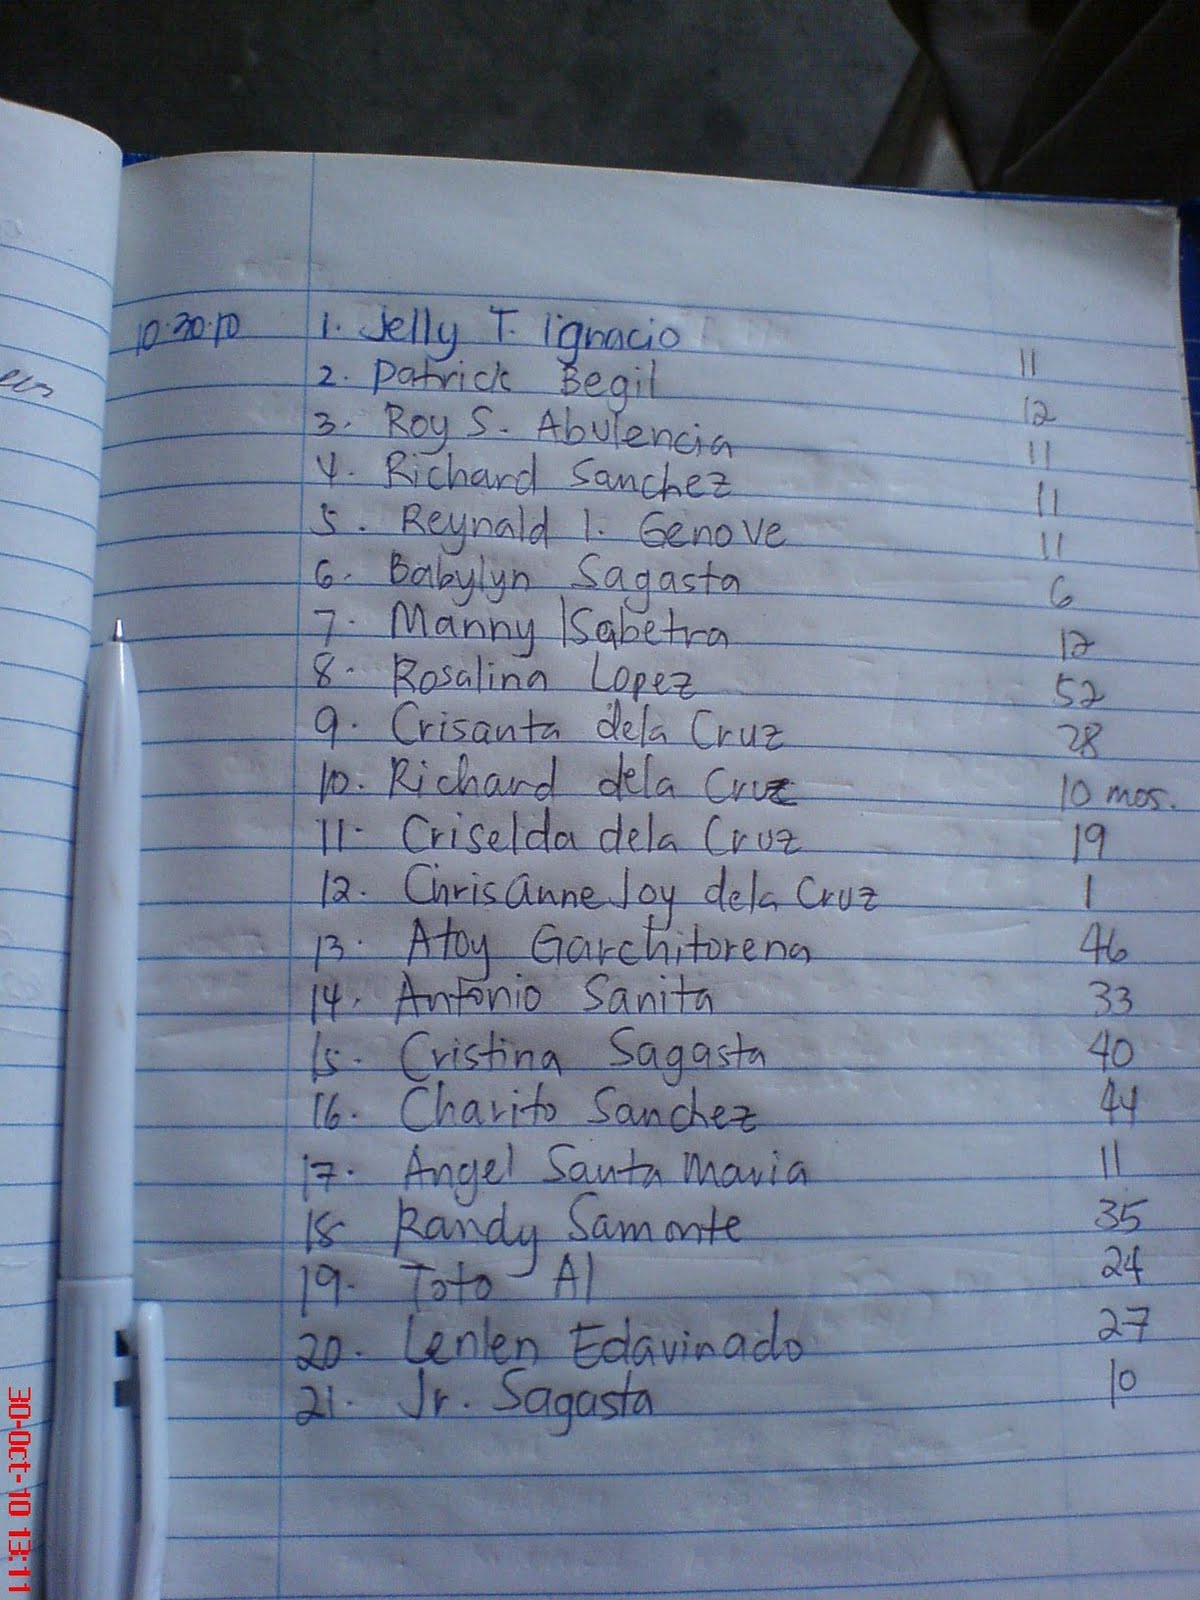 10.30.10 1. Jelly T. Ignacio 11
2. Patrick Begil 12
3. Roy S. Abulencia 11
4. Richard Sanchez 11
5. Reynald I. Genove 11
6. Babylyn Sagasta 6
7. Manny Isabetra 12
8. Rosalina Lopez 52
9. Crisanta dela Cruz 28
10. Richard dela Cruz 10 mos.
11. Criselda dela Cruz 19
12. Chris Anne Joy dela Cruz 1
13. Atoy Garchitorena 46
14. Antonio Sanita 33
15. Cristina Sagasta 40
16. Charito Sanchez 44
17. Angel Santa Maria 11
18 Randy Samonte 35
19. Toto Al 24
20. Lenlen Edavinado 27
21. Jr. Sagasta 10
30-Oct-10 13:11